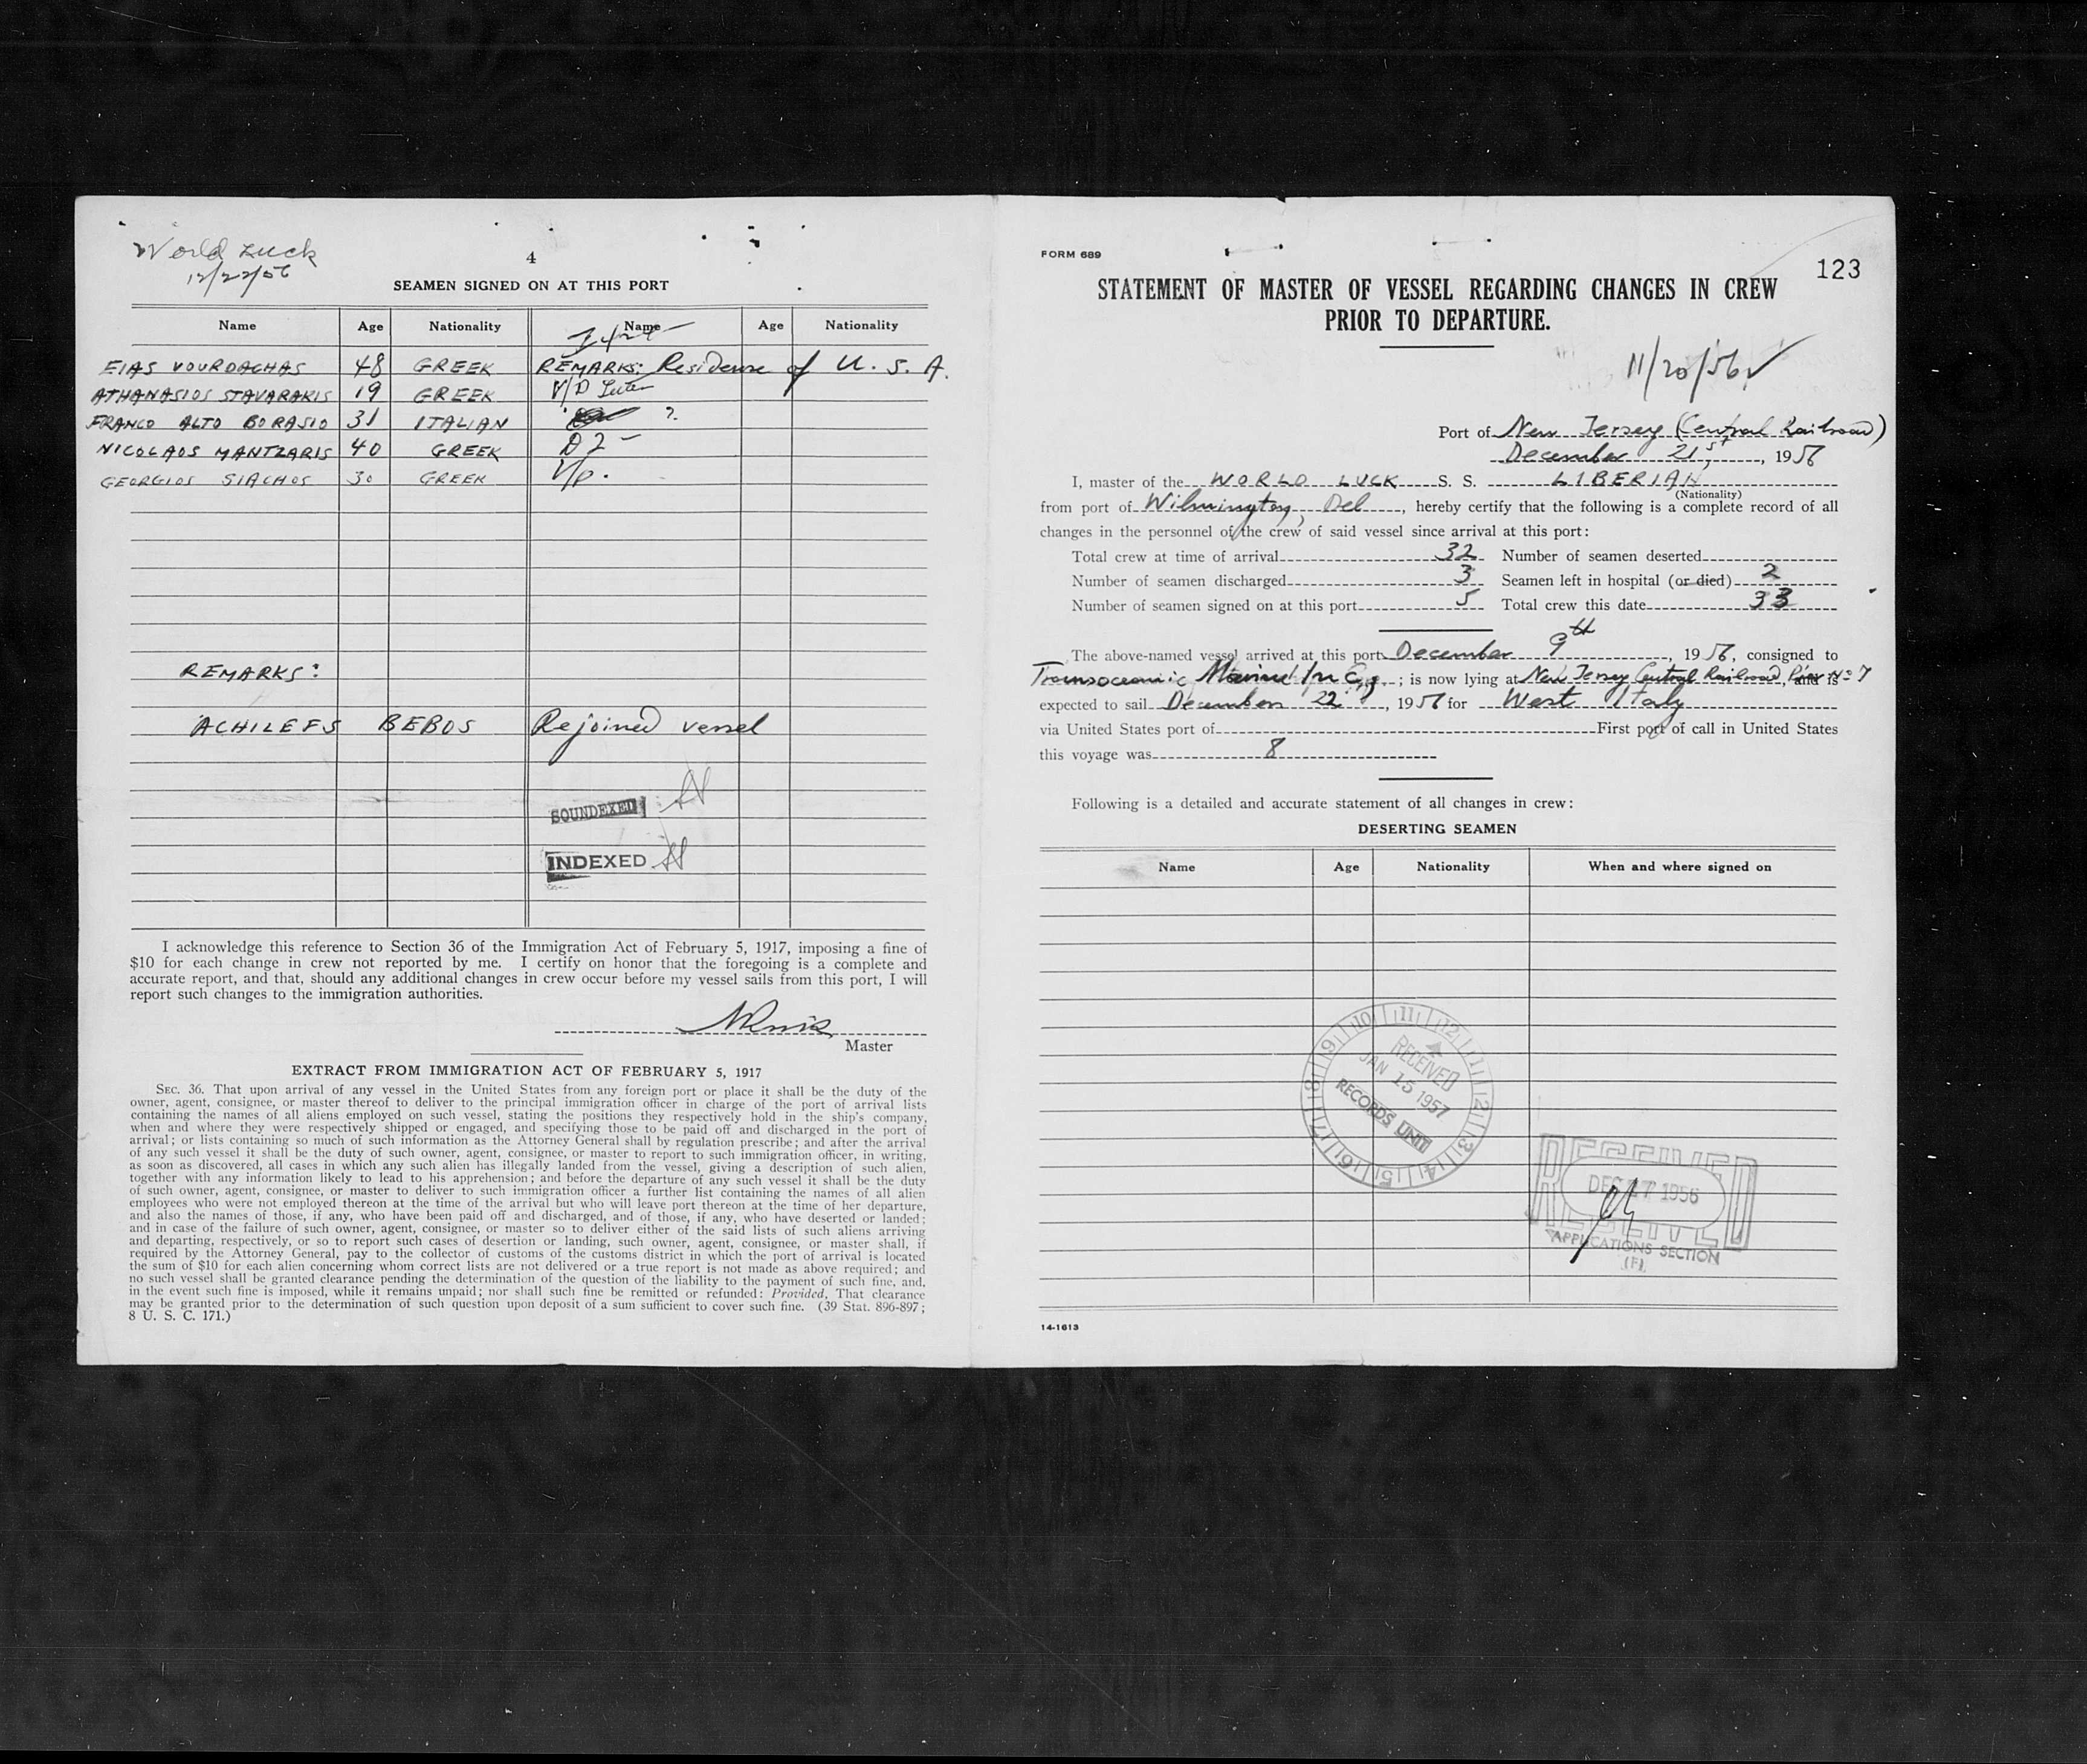 World Luck
12/22/56
4
SEAMEN SIGNED ON AT THIS PORT
Name Age Nationality Name Age Nationality
EIAS VOURDAGHAS 48 GREEK REMARKS: Residense of U. S. A.
ATHANASIOS STAVARAKIS 19 GREEK V/D
FRANCO ALTO BORASIO 31 ITALIAN ?
NICOLAOS MANTZARIS 40 GREEK D2 -
GEORGIOS SIACHOS 30 GREEK V/P.
REMARKS:
ACHILEFS BEBOS Rejoined vessel
SOUNDEXED
INDEXED
I acknowledge this reference to Section 36 of the Immigration Act of February 5, 1917, imposing a fine of
$10 for each change in crew not reported by me. I certify on honor that the foregoing is a complete and
accurate report, and that, should any additional changes in crew occur before my vessel sails from this port, I will
report such changes to the immigration authorities.
Master
EXTRACT FROM IMMIGRATION ACT OF FEBRUARY 5, 1917
SEC. 36. That upon arrival of any vessel in the United States from any foreign port or place it shall be the duty of the
owner, agent, consignee, or master thereof to deliver to the principal immigration officer in charge of the port of arrival lists
containing the names of all aliens employed on such vessel, stating the positions they respectively hold in the ship's company,
when and where they were respectively shipped or engaged, and specifying those to be paid off and discharged in the port of
arrival; or lists containing so much of such information as the Attorney General shall by regulation prescribe; and after the arrival
of any such vessel it shall be the duty of such owner, agent, consignee, or master to report to such immigration officer, in writing,
as soon as discovered, all cases in which any such alien has illegally landed from the vessel, giving a description of such alien,
together with any information likely to lead to his apprehension; and before the departure of any such vessel it shall be the duty
of such owner, agent, consignee, or master to deliver to such immigration officer a further list containing the names of all alien
employees who were not employed thereon at the time of the arrival but who will leave port thereon at the time of her departure,
and also the names of those, if any, who have been paid off and discharged, and of those, if any, who have deserted or landed;
and in case of the failure of such owner, agent, consignee, or master so to deliver either of the said lists of such aliens arriving
and departing, respectively, or so to report such cases of desertion or landing, such owner, agent, consignee, or master shall, if
required by the Attorney General, pay to the collector of customs of the customs district in which the port of arrival is located
the sum of $10 for each alien concerning whom correct lists are not delivered or a true report is not made as above required; and
no such vessel shall be granted clearance pending the determination of the question of the liability to the payment of such fine, and,
in the event such fine is imposed, while it remains unpaid; nor shall such fine be remitted or refunded: Provided, That clearance
may be granted prior to the determination of such question upon deposit of a sum sufficient to cover such fine. (39 Stat. 896-897;
8 U. S. C. 171.)
FORM 689
123
STATEMENT OF MASTER OF VESSEL REGARDING CHANGES IN CREW
PRIOR TO DEPARTURE.
11/20/56
Port of New Jersey (Central Railroad)
December 21st, 1956
I, master of the WORLD LUCK S. S. LIBERIAN
(Nationality)
from port of Wilmington, Del, hereby certify that the following is a complete record of all
changes in the personnel of the crew of said vessel since arrival at this port:
Total crew at time of arrival 32 Number of seamen deserted
Number of seamen discharged 3 Seamen left in hospital (or died) 2
Number of seamen signed on at this port 5 Total crew this date 33
The above-named vessel arrived at this port December 9th, 1956, consigned to
Transoceanic Marine Inc; is now lying at New Jersey Central Railroad, Pier No 7 and is
expected to sail December 22, 1956 for West Italy
via United States port of First port of call in United States
this voyage was 8
Following is a detailed and accurate statement of all changes in crew:
DESERTING SEAMEN
Name Age Nationality When and where signed on
10 11 12 1 2 3 4 5 6 7 8 9
RECEIVED
JAN 15 1957
RECORDS UNIT
RECEIVED
DEC 27 1956
RECEIVED
APPLICATIONS SECTION
(F)
14-1613